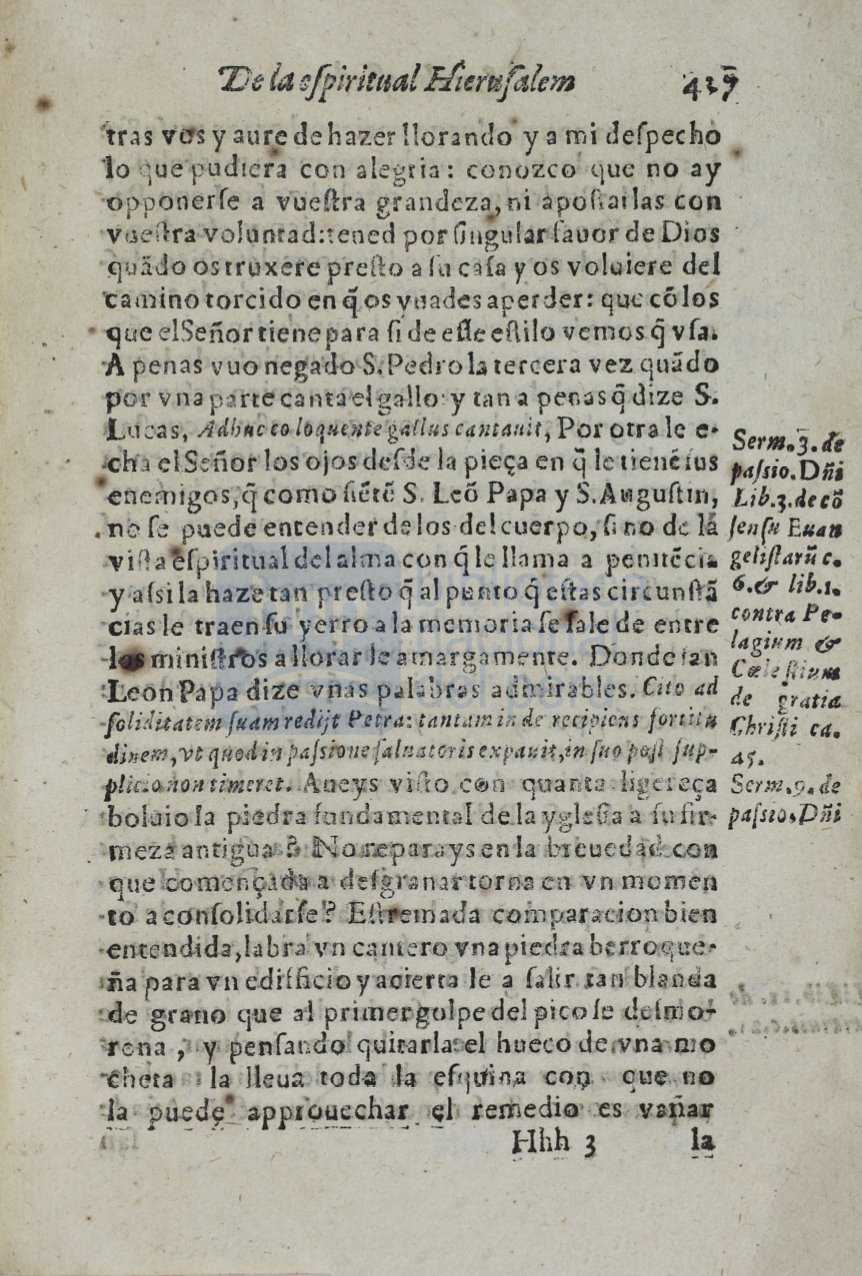 De la eſpiritual Hieruſalem 427
tras vos y aure de hazer llorando y a mi deſpecho
lo que pudiera con alegria: conozco que no ay
opponerſe a vueſtra grandeza, ni apoſtarlas con
vueſtra voluntad: tened por ſingular fauor de Dios
quãdo os truxere preſto a ſu caſa y os voluiere del
camino torcido en q̃ os yuades a perder: que cõ los
que el Señor tiene para ſi de eſſe eſtilo vemos q̃ vſa.
A penas vuo negado S. Pedro la tercera vez quãdo
por vna parte canta el gallo y tan a penas q̃ dize S.
Lucas, Adhuc eo loquente gallus cantauit, Por otra le e-
cha el Señor los ojos deſde la pieça en q̃ le tienẽ ſus
enemigos, q̃ como ſiẽtẽ S. Leõ Papa y S. Auguſtin,
no ſe puede entender de los del cuerpo, ſi no de la
viſta eſpiritual del alma con q̃ le llama a penitẽcia
y aſsi la haze tan preſto q̃ al punto q̃ eſtas circunſtã
cias le traen ſu yerro a la memoria ſe ſale de entre
los miniſtros a llorarle amargamente. Donde ſan
Leon Papa dize vnas palabras admirables. Cito ad
ſoliditatem ſuam redijt Petra: tantam inde recipiens fortitu
dinem, vt quod in paſsione ſaluatoris expauit, in ſuo poſt ſup-
plicio non timeret. Aueys viſto con quanta ligereça
boluio la piedra fundamental de la ygleſia a ſu fir-
meza antigua? No reparays en la breuedad con
que començada a deſgranar torna en vn momen
to a conſolidarſe? Eſtremada comparacion bien
entendida, labra vn cantero vna piedra berroque-
ña para vn edifficio y acierta le a ſalir tan blanda
de grano que al primer golpe del pico ſe deſmo-
rona, y penſando quitarla el hueco de vna mo
cheta la lleua toda la eſquina con que no
la puede approuechar el remedio es vañar
Hhh 3 la
Serm. 3. de
paſsio. Dñi
Lib. 3. de cõ
ſenſu Euan
geliſtarũ c.
6. & lib. 1.
contra Pe-
lagium &
Cæleſtium
de gratia
Chriſti ca.
45.
Serm. 9. de
paſsio. Dñi